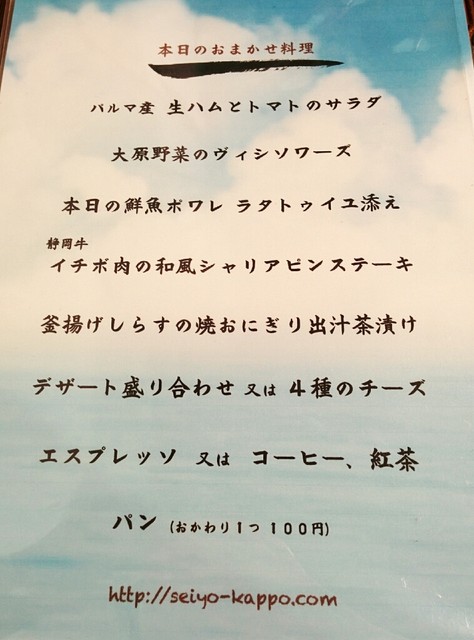 本日のおまかせ料理
パルマ産 生ハムとトマトのサラダ
大原野菜のヴィシソワーズ
本日の鮮魚ポワレ ラタトゥイユ添え
静岡牛
イチボ肉の和風シャリアピンステーキ
釜揚げしらすの焼おにぎり出汁茶漬け
デザート盛り合わせ 又は 4種のチーズ
エスプレッソ 又は コーヒー、紅茶
パン (おかわり1つ 100円)
http://seiyo-kappo.com